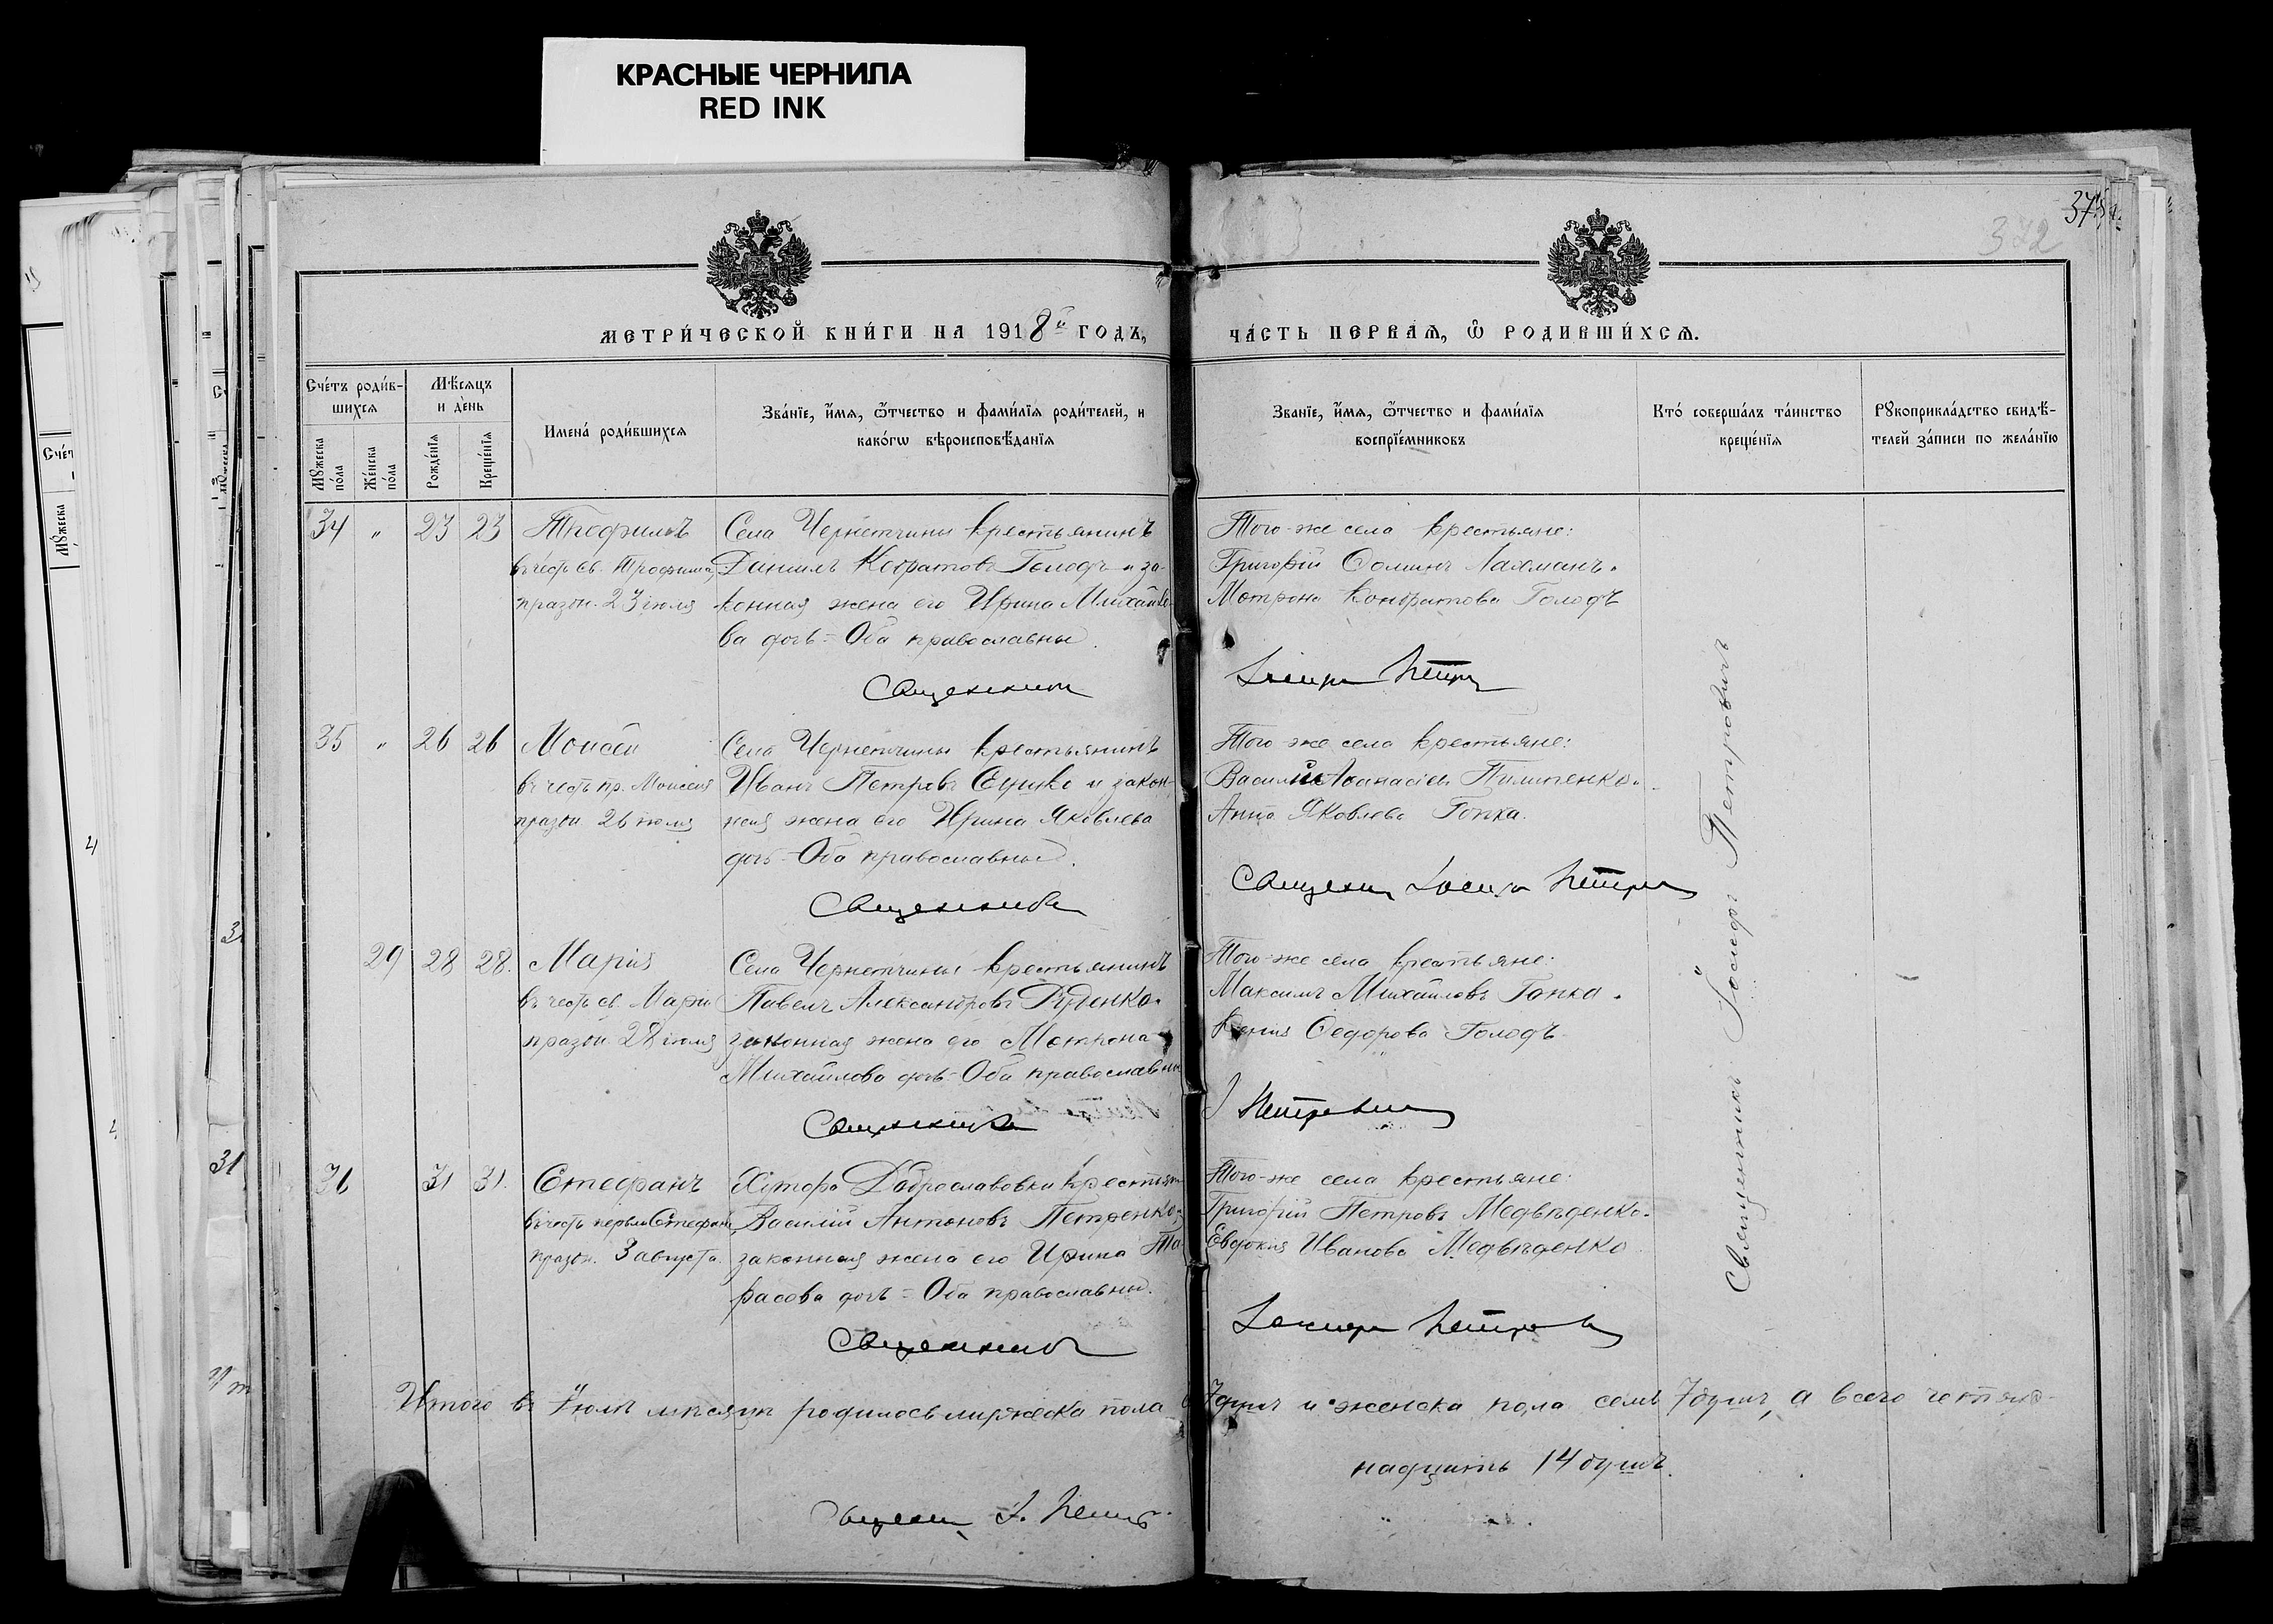 КРАСНЫЕ ЧЕРНИЛА
RED INK
372
МЕТРИ́ЧЕСКОЙ КНИ́ГИ НА 1918 й ГОДЪ,
ЧА́СТЬ ПЕРВАѦ, Ѽ РОДИВШИ́ХСѦ.
Сче́тъ роди́в-
шихсѧ
Мѣ́сѧцъ
и де́нь
Мꙋ́жеска по́ла
Же́нска по́ла
Рожде́нїѧ
Креще́нїѧ
Имена̀ роди́вшихсѧ
Зва́нїе, и҆́мѧ, ѻ҆́тчество и фами́лїѧ роди́телей, и
како́гѡ вѣроисповѣ́данїѧ
Зва́нїе, и҆́мѧ, ѻ҆́тчество и фами́лїѧ
воспрїе́мниковъ
Кто́ соверша́лъ та́инство
креще́нїѧ
Рꙋкоприкла́дство свидѣ́-
телей за́писи по жела́нїю
34 " 23 23 Трофимъ
въ честь св. Трофима,
празон. 23 іюля
Села Чернетчины крестьянинъ
Даніилъ Кондратовъ Голодъ и за-
конная жена его Ирина Михайло-
ва дочь = Оба православны.
Священникъ
Того-же села крестьяне:
Григорій Ѳоминъ Лахманъ.
Мотрона Кондратова Голодъ
Іосифъ Петро
35 " 26 26 Моисей
въ честь пр. Моисея
празон 26 іюля
Села Чернетчины крестьянинъ
Иванъ Петровъ и закон-
ная жена его Ирина Яковлева
дочь = Оба православны.
Священникъ
Того же села крестьяне:
Василій Аѳанасіевъ Пилипенко.
Анна Яковлева Гопка.
Священ Іосифъ Петро
29 28 28. Марія
въ честь св. Маріи
празон 28 іюля
Села Чернетчины крестьянинъ
Павелъ Александровъ Руденко.
законная жена его Мотрона
Михайлова дочь = Оба православны
Священникъ
Того-же села крестьяне:
Максимъ Михайловъ Гопка.
Ксенія Ѳедорова Голодъ
І Петровичъ
36 31 31. Стефанъ
въ честь первом Стефана,
празон. 3 августа.
Хутора Доброславовки крестьян
Василій Антоновъ Петренко
законная жена его Ирина Та-
расова дочь = Оба православны.
Священникъ
Того-же села крестьяне:
Григорій Петровъ Медвѣденко.
Евдокія Иванова Медвѣденко
Іосифъ Петров
Священникъ Іосифъ Петровичъ
Итого въ Іюлѣ мѣсяцѣ родилось мужеска пола 7 душъ и женска пола семь 7 душъ, а всего четыр-
надцать 14 душъ.
Священ І. Петров